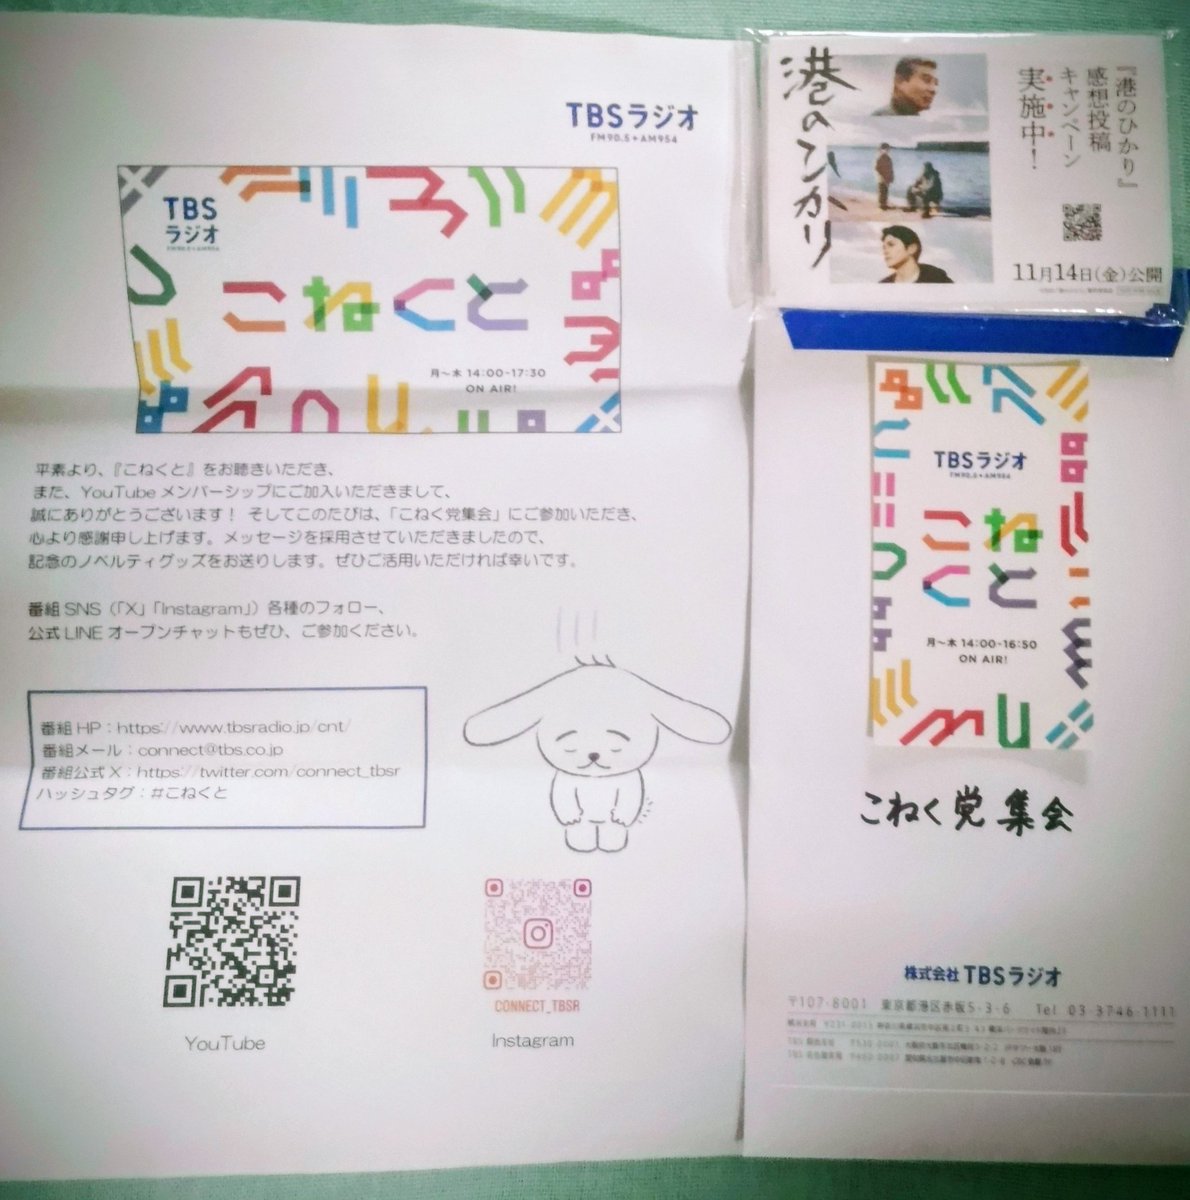 TBSラジオ
FM90.5+AM954
TBS
ラジオ
FM90.5+AM954
こねくと
月~木 14:00-17:30
ON AIR!
平素より、『こねくと』をお聴きいただき、
また、YouTubeメンバーシップにご加入いただきまして、
誠にありがとうございます! そしてこのたびは、「こねく党集会」にご参加いただき、
心より感謝申し上げます。メッセージを採用させていただきましたので、
記念のノベルティグッズをお送りします。ぜひご活用いただければ幸いです。
番組SNS(「X」「Instagram」)各種のフォロー、
公式LINEオープンチャットもぜひ、ご参加ください。
番組HP:https://www.tbsradio.jp/cnt/
番組メール:connect@tbs.co.jp
番組公式X:https://twitter.com/connect_tbsr
ハッシュタグ:#こねくと
YouTube
CONNECT_TBSR
Instagram
港のひかり
『港のひかり』
感想投稿
キャンペーン
実施中!
11月14日(金)公開
TBSラジオ
FM90.5+AM954
こね
くと
月~木 14:00-16:50
ON AIR!
こねく党集会
株式会社TBSラジオ
〒107-8001 東京都港区赤坂5-3-6 Tel 03-3746-1111